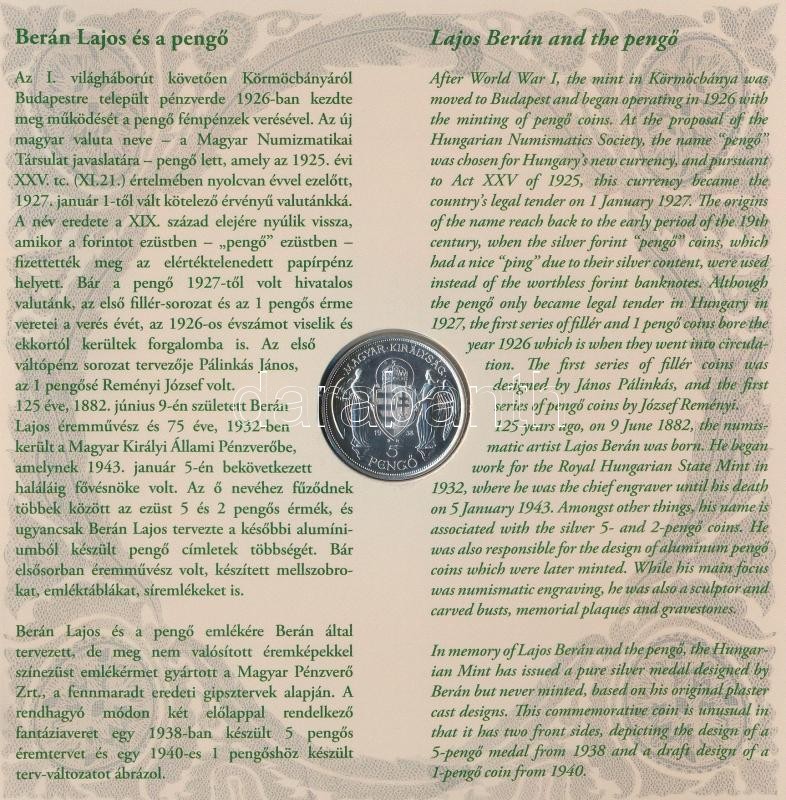 Berán Lajos és a pengő
Az I. világháborút követően Körmöcbányáról
Budapestre települt pénzverde 1926-ban kezdte
meg működését a pengő fémpénzek verésével. Az új
magyar valuta neve – a Magyar Numizmatikai
Társulat javaslatára – pengő lett, amely az 1925. évi
XXV. tc. (XI.21.) értelmében nyolcvan évvel ezelőtt,
1927. január 1-től vált kötelező érvényű valutánkká.
A név eredete a XIX. század elejére nyúlik vissza,
amikor a forintot ezüstben – „pengő” ezüstben –
fizettették meg az elértéktelenedett papírpénz
helyett. Bár a pengő 1927-től volt hivatalos
valutánk, az első fillér-sorozat és az 1 pengős érme
veretei a verés évét, az 1926-os évszámot viselik és
ekkortól kerültek forgalomba is. Az első
váltópénz sorozat tervezője Pálinkás János,
az 1 pengősé Reményi József volt.
125 éve, 1882. június 9-én született Berán
Lajos éremművész és 75 éve, 1932-ben
került a Magyar Királyi Állami Pénzverőbe,
amelynek 1943. január 5-én bekövetkezett
haláláig fővésnöke volt. Az ő nevéhez fűződnek
többek között az ezüst 5 és 2 pengős érmék, és
ugyancsak Berán Lajos tervezte a későbbi alumíni-
umból készült pengő címletek többségét. Bár
elsősorban éremművész volt, készített mellszobro-
kat, emléktáblákat, síremlékeket is.
Berán Lajos és a pengő emlékére Berán által
tervezett, de meg nem valósított éremképekkel
színezüst emlékérmet gyártott a Magyar Pénzverő
Zrt., a fennmaradt eredeti gipsztervek alapján. A
rendhagyó módon két előlappal rendelkező
fantáziaveret egy 1938-ban készült 5 pengős
éremtervet és egy 1940-es 1 pengőshöz készült
terv-változatot ábrázol.
MAGYAR·KIRÁLYSÁG
19 38
5
PENGŐ
darabanth
Lajos Berán and the pengő
After World War I, the mint in Körmöcbánya was
moved to Budapest and began operating in 1926 with
the minting of pengő coins. At the proposal of the
Hungarian Numismatics Society, the name “pengő”
was chosen for Hungary's new currency, and pursuant
to Act XXV of 1925, this currency became the
country's legal tender on 1 January 1927. The origins
of the name reach back to the early period of the 19th
century, when the silver forint “pengő” coins, which
had a nice “ping” due to their silver content, were used
instead of the worthless forint banknotes. Although
the pengő only became legal tender in Hungary in
1927, the first series of fillér and 1 pengő coins bore the
year 1926 which is when they went into circula-
tion. The first series of fillér coins was
designed by János Pálinkás, and the first
series of pengő coins by József Reményi.
125 years ago, on 9 June 1882, the numis-
matic artist Lajos Berán was born. He began
work for the Royal Hungarian State Mint in
1932, where he was the chief engraver until his death
on 5 January 1943. Amongst other things, his name is
associated with the silver 5- and 2-pengő coins. He
was also responsible for the design of aluminum pengő
coins which were later minted. While his main focus
was numismatic engraving, he was also a sculptor and
carved busts, memorial plaques and gravestones.
In memory of Lajos Berán and the pengő, the Hungar-
ian Mint has issued a pure silver medal designed by
Berán but never minted, based on his original plaster
cast designs. This commemorative coin is unusual in
that it has two front sides, depicting the design of a
5-pengő medal from 1938 and a draft design of a
1-pengő coin from 1940.